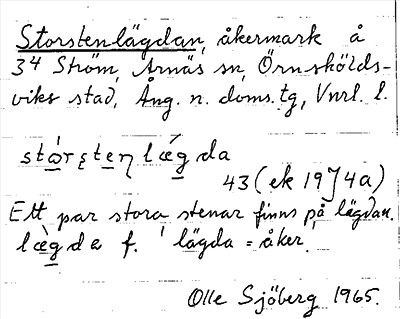 Storstenlägdan, åkermark å
3⁴ Ström, Arnäs sn, Örnskölds-
viks stad, Ång. n. doms.tg, Vnrl. l.
stɷ́rʂtɛɳlæ̀gda
43 (ek 19 J 4a)
Ett par stora stenar finns på lägdan.
læ̀gda f. 'lägda = åker'
Olle Sjöberg 1965.